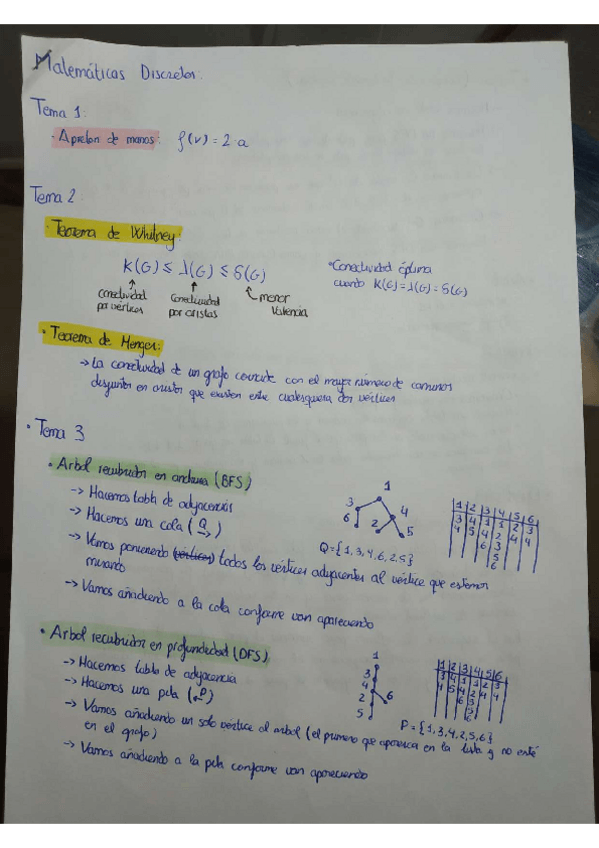 Matemáticas Discretas:
Tema 1:
- Apretón de manos: f(v) = 2·a
Tema 2:
· Teorema de Whitney:
K(G) ≤ λ(G) ≤ δ(G)
conectividad por vértices
Conectividad por aristas
menor Valencia
*Conectividad óptima
cuando K(G) = λ(G) = δ(G)
· Teorema de Menger:
→ La conectividad de un grafo coincide con el mayor número de caminos
disyuntos en aristas que existen entre cualesquiera dos vértices
· Tema 3
· Arbol recubridor en anchura (BFS)
→ Hacemos tabla de adyacencias
→ Hacemos una cola (Q)
→ Vamos poniendo todos los vértices adyacentes al vértice que estemos
mirando
→ Vamos añadiendo a la cola conforme van apareciendo
1
3
4
6
2
5
Q = {1, 3, 4, 6, 2, 5}
1 2 3 4 5 6
3 4 1 1 2 3
4 5 4 2 4 4
6 3
5
6
· Arbol recubridor en profundidad (DFS)
→ Hacemos tabla de adyacencia
→ Hacemos una pila (P)
→ Vamos añadiendo un solo vértice al arbol (el primero que aparezca en la lista y no esté
en el grafo)
→ Vamos añadiendo a la pila conforme van apareciendo
1
3
4
2
6
5
P = {1, 3, 4, 2, 5, 6}
1 2 3 4 5 6
3 4 1 1 2 3
4 5 4 2 4 4
6 3
5
6